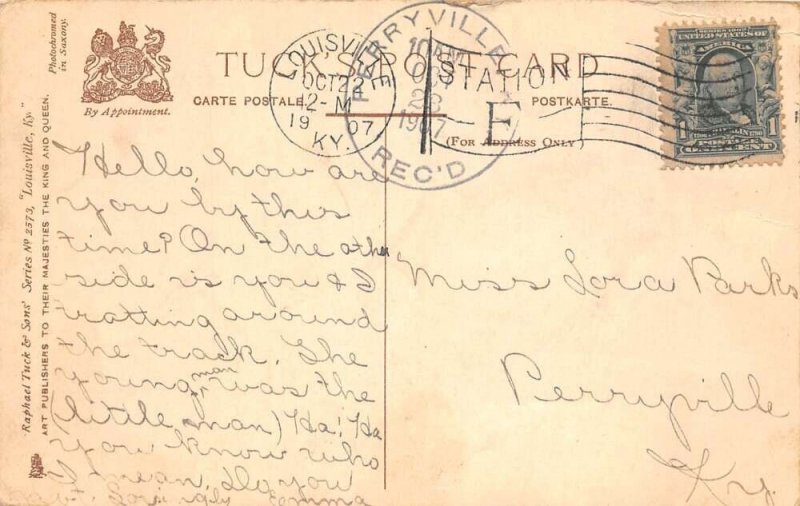 Photochromed
in Saxony.
By Appointment.
TUCK'S POST CARD
CARTE POSTALE.
POSTKARTE.
(FOR ADDRESS ONLY)
LOUISVILLE
OCT 22
2- M
1907
KY.
PERRYVILLE
10 AM
23
1907
REC'D
STATION
E
SERIES 1902
UNITED STATES OF
AMERICA
1 1
ONE CENT
Raphael Tuck & Sons' Series No 2573, "Louisville, Ky."
ART PUBLISHERS TO THEIR MAJESTIES THE KING AND QUEEN.
Hello, how are
you by this
time? On the other
side is you & I
trotting around
the track. The
young man was the
(little man) Ha! Ha
you know who
I mean. Do you
Lovingly Emma
Miss Lora Parks
Perryville
Ky.